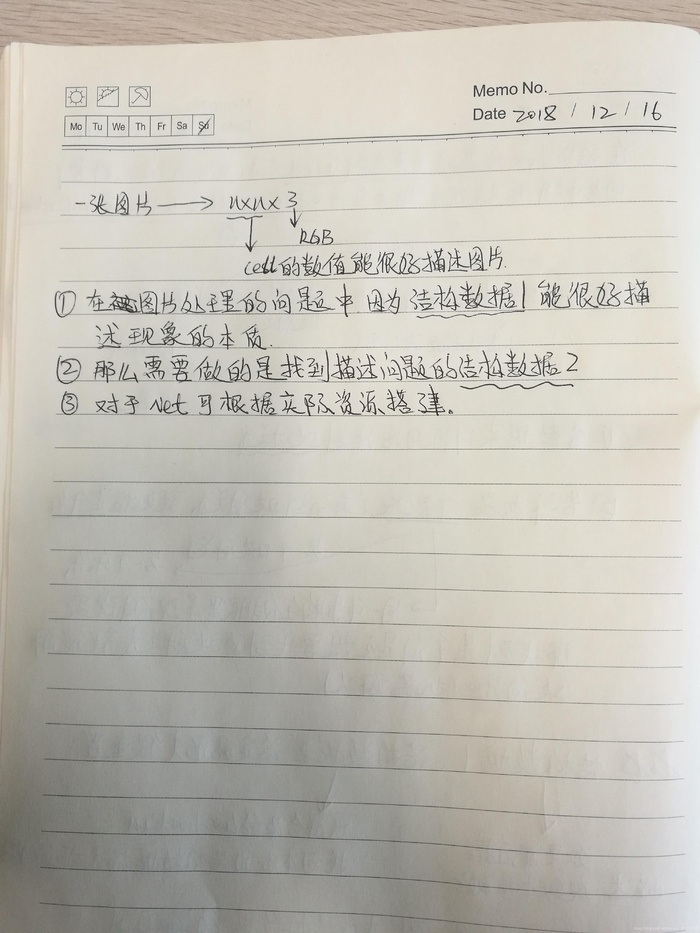 Memo No.
Date 2018 / 12 / 16
Mo Tu We Th Fr Sa Su
一张图片 → n×n×3
RGB
cell的数值能很好描述图片.
① 在图片处理的问题中 因为结构数据1能很好描
述现象的本质.
② 那么需要做的是找到描述问题的结构数据2
③ 对于Net可根据实际资源搭建。